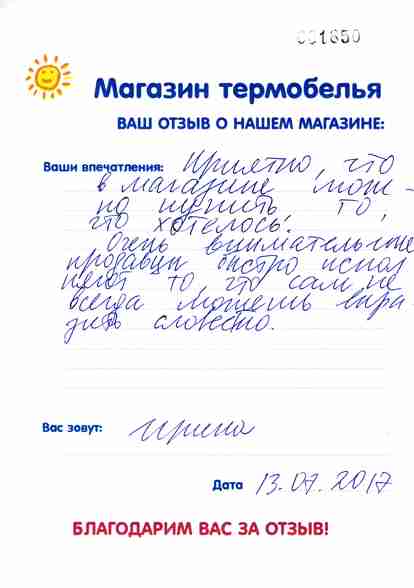 001650
Магазин термобелья
ВАШ ОТЗЫВ О НАШЕМ МАГАЗИНЕ:
Ваши впечатления: Приятно, что
в магазине мож-
но купить то,
что хотелось.
Очень внимательные
продавцы быстро испол
няют то, что сам не
всегда можешь выра
зить словесно.
Вас зовут: Ирина
Дата 13.07.2017
БЛАГОДАРИМ ВАС ЗА ОТЗЫВ!